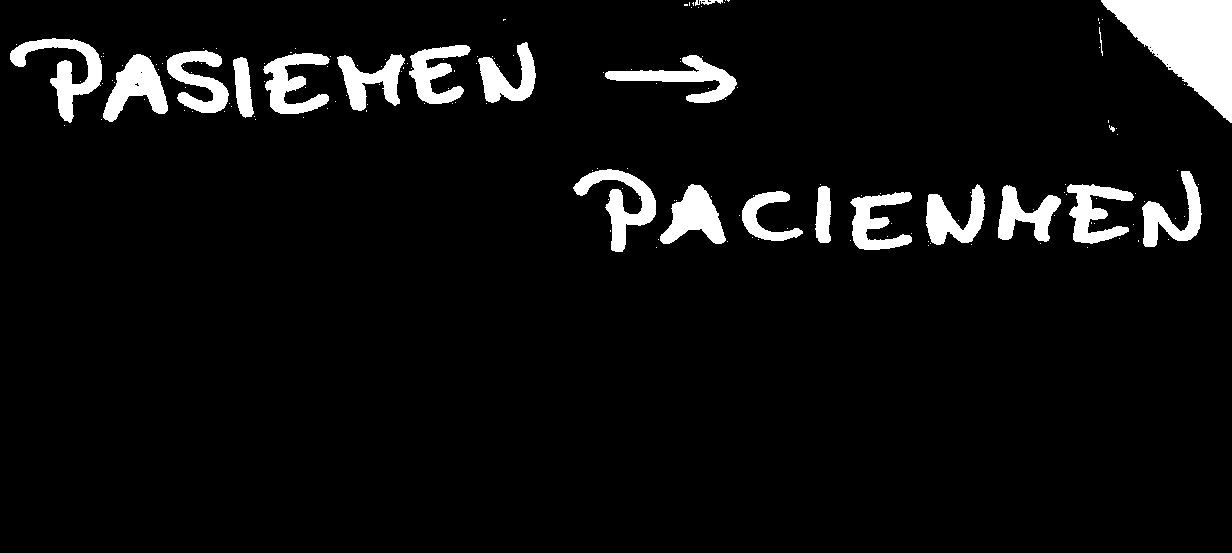 PASIEMEN →
PACIENMEN